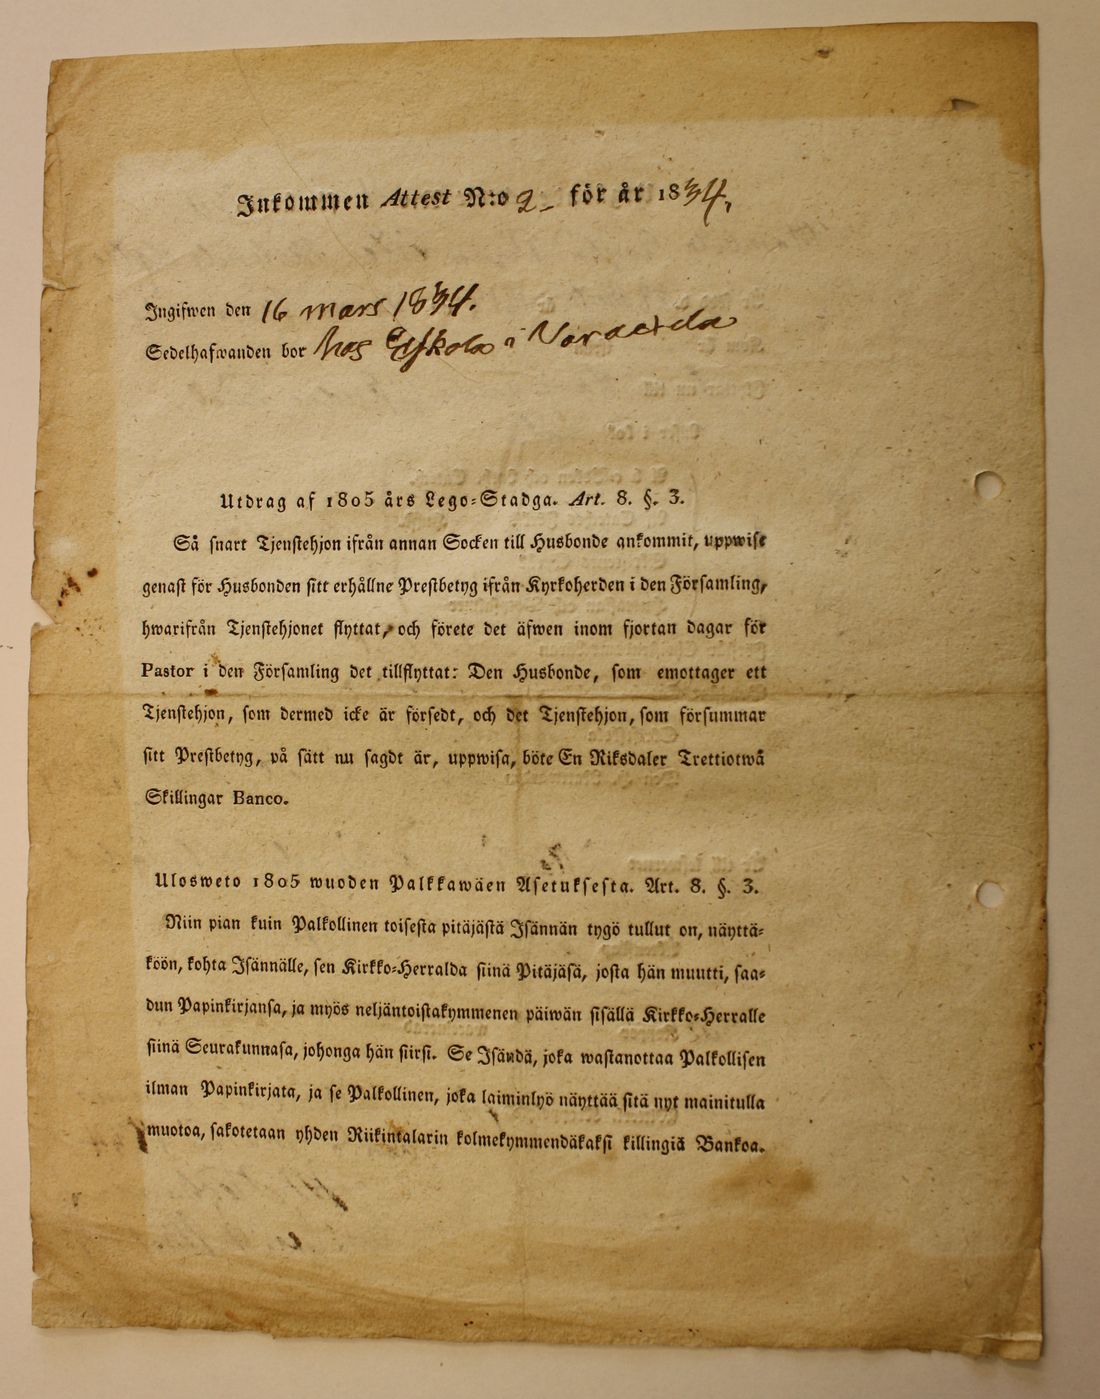 Inkommen Attest N:o 2 för år 1834,
Ingifwen den 16 mars 1834.
Sedelhafwanden bor hos Eskola i
Utdrag af 1805 års Lego-Stadga. Art. 8. §. 3.
Så snart Tjenstehjon ifrån annan Socken till Husbonde ankommit, uppwise
genast för Husbonden sitt erhållne Prestbetyg ifrån Kyrkoherden i den Församling,
hwarifrån Tjenstehjonet flyttat, och förete det äfwen inom fjortan dagar för
Pastor i den Församling det tillflyttat: Den Husbonde, som emottager ett
Tjenstehjon, som dermed icke är försedt, och det Tjenstehjon, som försummar
sitt Prestbetyg, på sätt nu sagdt är, uppwisa, böte En Riksdaler Trettiotwå
Skillingar Banco.
Ulosweto 1805 wuoden Palkkawäen Asetuksesta. Art. 8. §. 3.
Niin pian kuin Palkollinen toisesta pitäjästä Isännän tygö tullut on, näyttä-
köön, kohta Isännälle, sen Kirkko-Herralda siinä Pitäjäsä, josta hän muutti, saa-
dun Papinkirjansa, ja myös neljäntoistakymmenen päiwän sisällä Kirkko-Herralle
siinä Seurakunnasa, johonga hän siirsi. Se Isändä, joka wastanottaa Palkollisen
ilman Papinkirjata, ja se Palkollinen, joka laiminlyö näyttää sitä nyt mainitulla
muotoa, sakotetaan yhden Riikintalarin kolmekymmendäkaksi killingiä Bankoa.